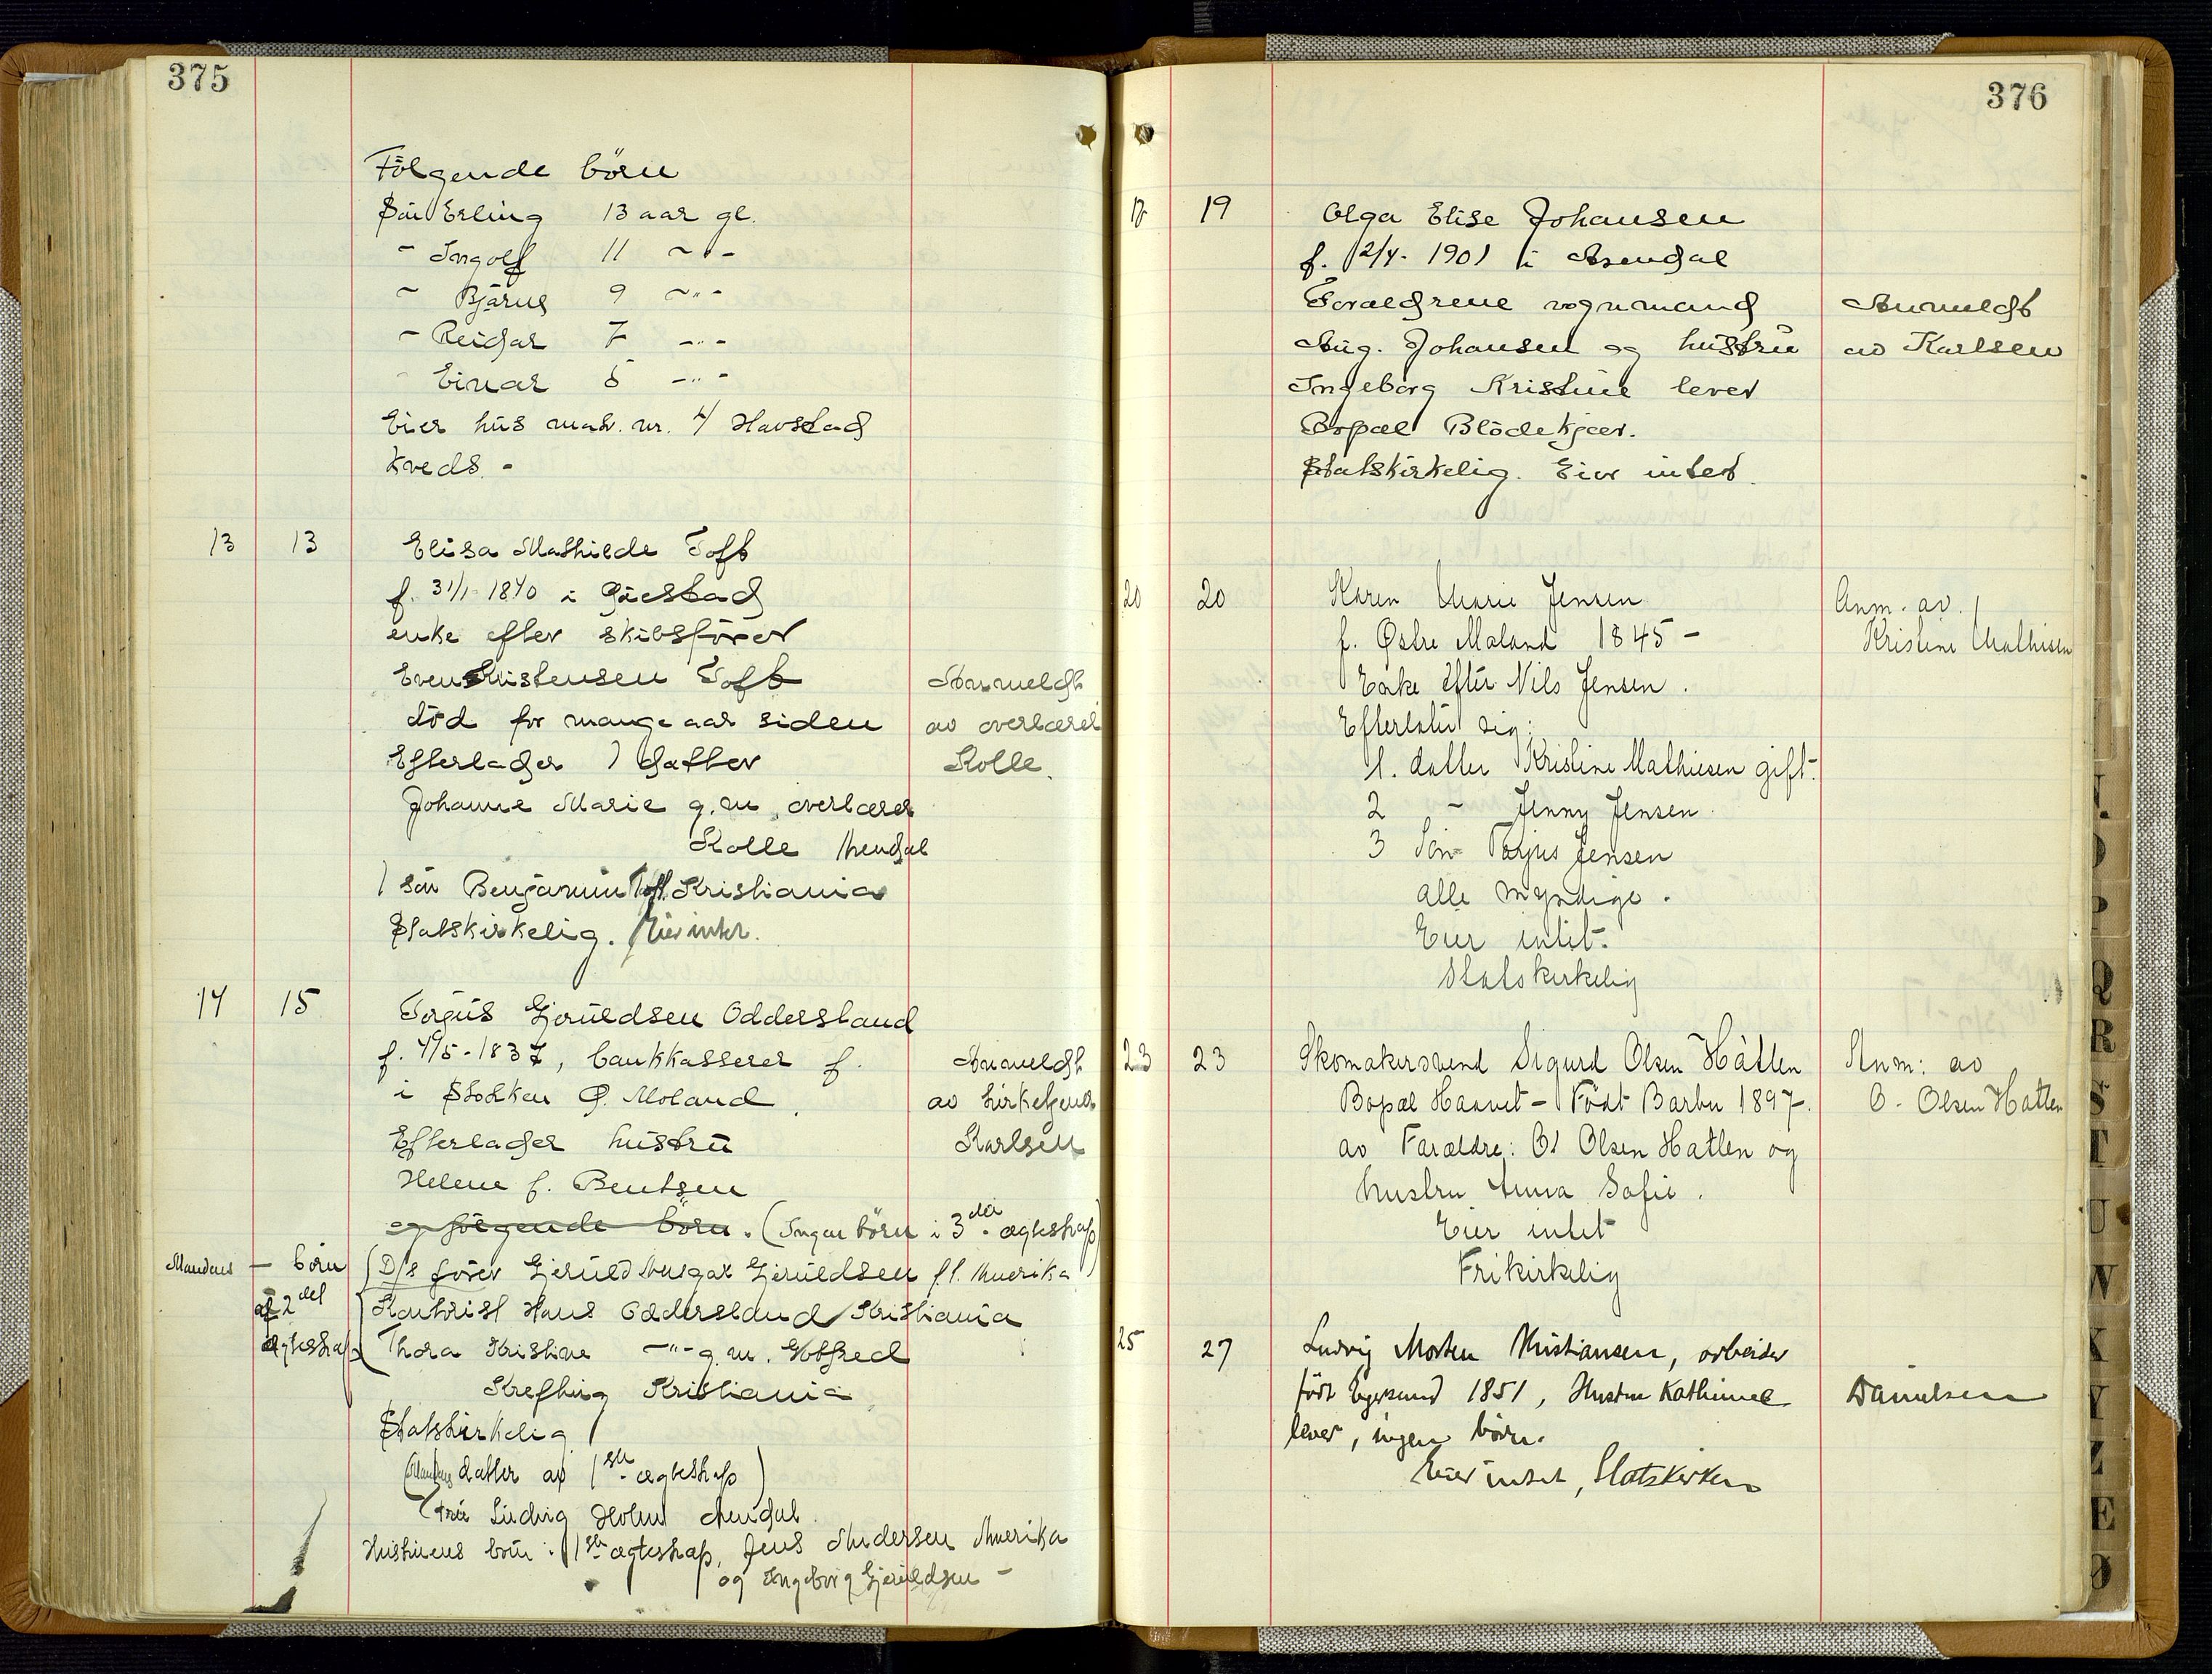 375
Følgende börn
Sön Erling 13 aar gl.
" Ingolf 11 - " -
" Bjarne 9 - " -
" Reidar 7 - " -
" Einar 5 - " -
Eier hus matr. nr. 4/ Havstad
kreds -
13 13 Elisa Mathilde Toft
f. 31/1 1840 i Gjerstad
enke efter skibsförer
Even Kristensen Toft Anmeldt
död for mange aar siden av overlærer
Efterlader 1 datter Kolle.
Johanne Marie g.m. overlærer
Kolle Arendal
1 sön Benjamin Toft Kristiania
Statskirkelig. Eier intet.
14 15 Terjus Gjeruldsen Oddersland
f. 4/5-1837, bankkasserer f. Anmeldt
i Stokken Ø. Moland. av kirketjener
Efterlader hustru Karlsen
Helene f. Bentsen
og følgende börn. (Ingen börn i 3die ægteskap)
Mandens - börn D/s förer Gjeruld Ansgar Gjeruldsen f.t. Amerika
af 2det Kontorist Hans Oddersland Kristiania
ægteskap Thora Kristine - " - g.m. Gotfred
Krefting Kristiania
Statskirkelig
(Mandens datter av 1ste ægteskap)
Fru Ludvig Holm Arendal.
Hustruens börn i 1ste ægteskap, Jens Andersen Amerika
og Ingeborg Gjeruldsen -
376
17 19 Olga Elise Johansen
f. 12/4- 1901 i Arendal
Forældrene vognmand Anmeldt
Aug. Johansen og hustru av Karlsen
Ingeborg Kristine lever
Bopæl Blödekjær.
Statskirkelig. Eier intet.
20 20 Karen Marie Jensen Anm. av.
f. Østre Moland 1845 - Kristine Mathisen
Enke efter Nils Jensen.
Efterlater sig:
1. datter Kristine Mathiesen gift.
2 - Jenny Jensen
3 Sön Terjus Jensen
alle myndige.
Eier intet.
Statskirkelig
23 23 Skomakersvend Sigurd Olsen Hatlen Anm: av
Bopæl Haavet - Födt Barbu 1897. O. Olsen Hatlen
av Forældre: Ol Olsen Hatlen og
hustru Anna Sofie.
Eier intet
Frikirkelig
25 27 Ludvig Morten Kristiansen, arbeider
födt Egersund 1851, Hustru Kathinne Danielsen
lever, ingen börn.
Eier intet, Statskirken